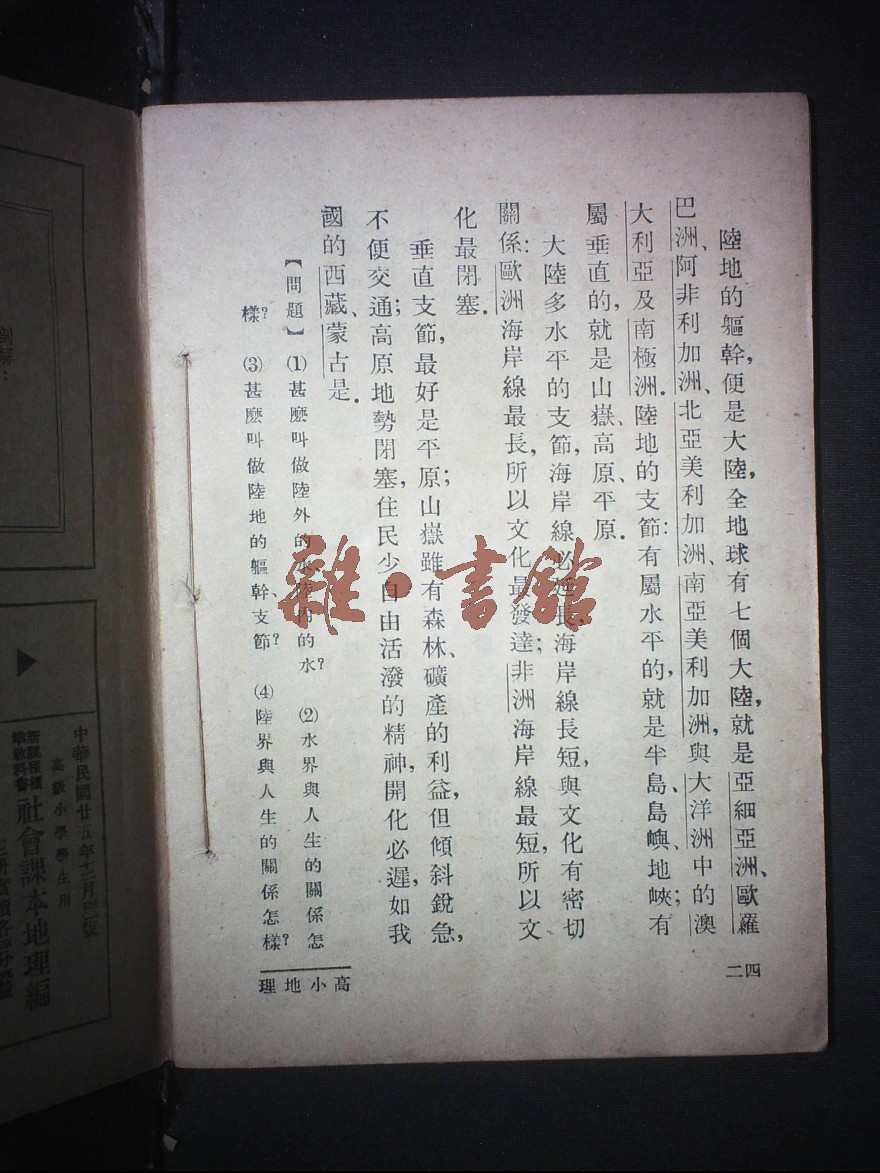 陸地的軀幹,便是大陸,全地球有七個大陸,就是亞細亞洲、歐羅
巴洲、阿非利加洲、北亞美利加洲、南亞美利加洲,與大洋洲中的澳
大利亞及南極洲.陸地的支節:有屬水平的,就是半島、島嶼、地峽;有
屬垂直的,就是山嶽、高原、平原.
大陸多水平的支節,海岸線必延長,海岸線長短,與文化有密切
關係:歐洲海岸線最長,所以文化最發達;非洲海岸線最短,所以文
化最閉塞.
垂直支節,最好是平原;山嶽雖有森林、礦產的利益,但傾斜銳急,
不便交通;高原地勢閉塞,住民少自由活潑的精神,開化必遲,如我
國的西藏、蒙古是.
【問題】 (1)甚麽叫做陸外的水、陸內的水? (2)水界與人生的關係怎
樣? (3)甚麽叫做陸地的軀幹、支節? (4)陸界與人生的關係怎樣?
二四
高小地理
雜·書館
中華民國廿五年十二月四版
高級小學學生用
新課程標
準教科書
社會課本地理編